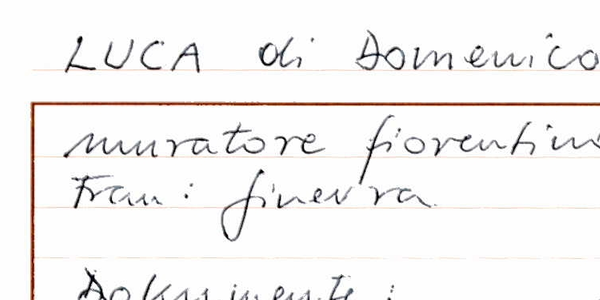 LUCA di Domenico
muratore fiorentino
Frau: Ginevra
Dokumente: